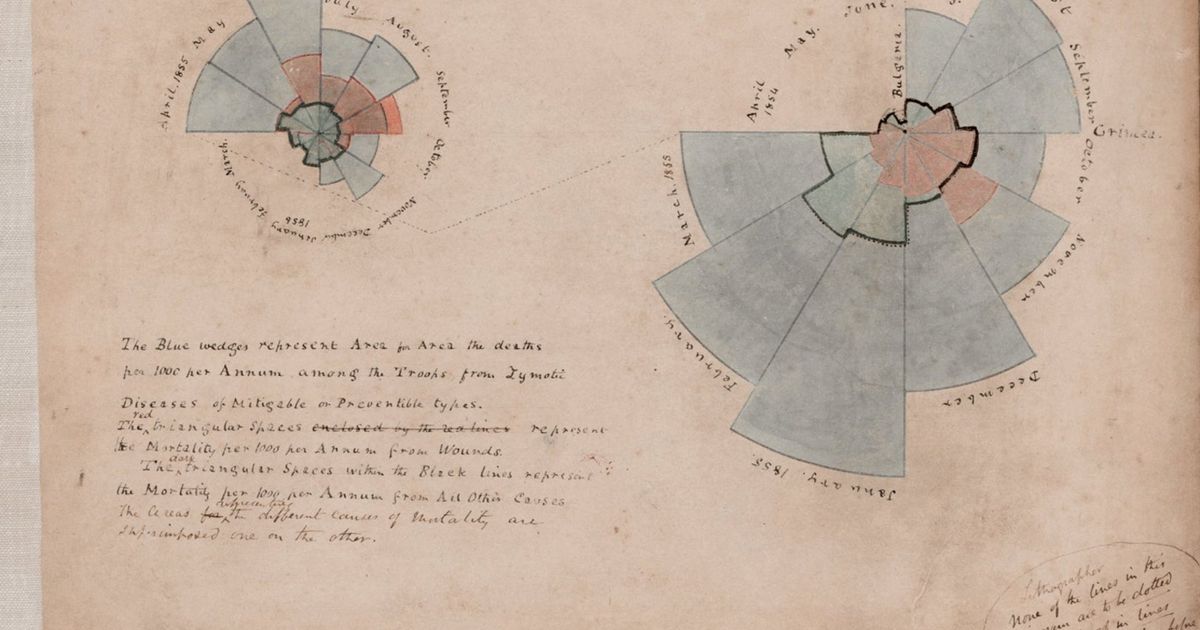 July
August.
September
October
November
December
January
1856
February
March
April. 1855
May
Bulgaria.
June.
May.
April
1854
September
Crimea.
October
November
December
January. 1855.
February.
March. 1855
The Blue wedges represent Area for Area the deaths
per 1000 per Annum among the Troops from Zymotic
Diseases of Mitigable or Preventible types.
red
The triangular Spaces enclosed by the red lines represent
the Mortality per 1000 per Annum from Wounds.
dark
The triangular Spaces within the Black lines represent
the Mortality per 1000 per Annum from All Other Causes
representing
The Areas for the different causes of Mortality are
superimposed one on the other.
Lithographer
None of the lines in this
are to be dotted
in lines